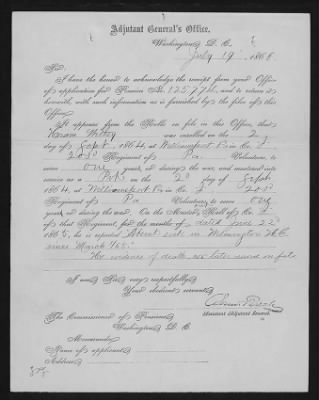 Adjutant General's Office,
Washington, D. C.
July 19 1866
Sir:
I have the honor to acknowledge the receipt from your Office
of application for Pension No. 125776, and to return it
herewith, with such information as is furnished by the files of this
Office.
It appears from the Rolls on file in this Office, that
was enrolled on the 2
day of Sept, 1864, at Williamsport Pa in Co. I
205 Regiment of Pa Volunteers, to
serve One years, or during the war, and mustered into
service as a on the 2 day of Sept
1864, at Williamsport Pa in Co. I 205
Regiment of Pa Volunteers, to serve One
years, or during the war. On the Muster Roll of Co. I
of that Regiment, for the months of dated June 2
1865, he is reported "Absent sick in Wilmington N.C.
since March '65."
No evidence of death or later record on file
I am, Sir, very respectfully,
Your obedient servant,
Assistant Adjutant General.
The Commissioner of Pensions,
Washington, D. C.
Memoranda:
Name of applicant
Address